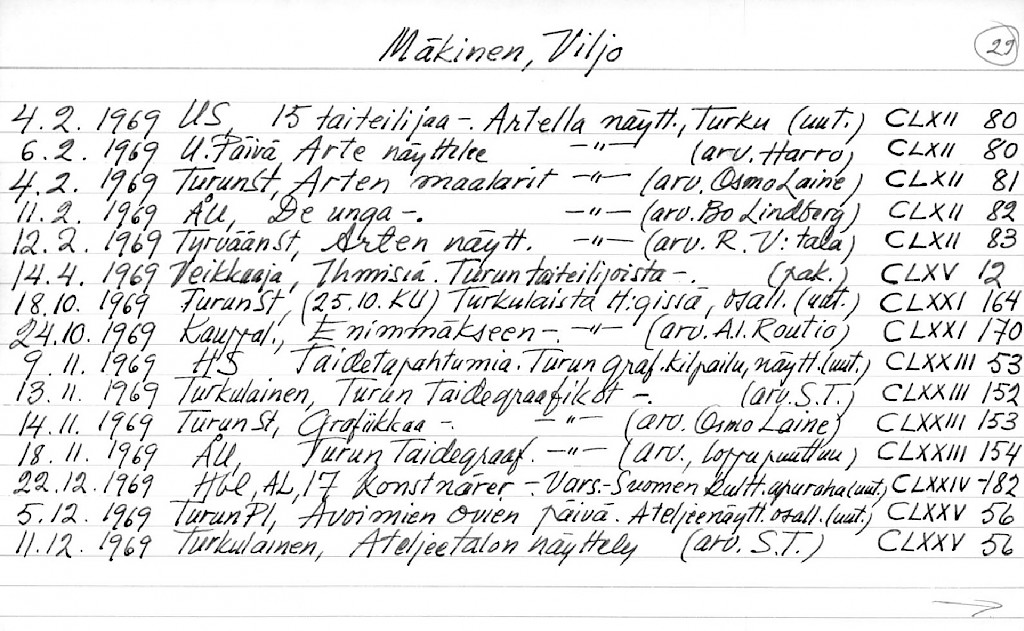 Mäkinen, Viljo
29
4.2. 1969 US, 15 taiteilijaa -. Artella näytt., Turku (uut.) CLXII 80
6.2. 1969 U.Päivä, Arte näyttelee -"- (arv. Harro) CLXII 80
4.2. 1969 TurunSt, Arten maalarit -"- (arv. Osmo Laine) CLXII 81
11.2. 1969 ÅU, De unga -. -"- (arv. Bo Lindberg) CLXII 82
12.2. 1969 TyrväänSt, Arten näytt. -"- (arv. R. V:tala) CLXII 83
14.4. 1969 Veikkaaja, Ihmisiä. Turun taiteilijoista -. (pak.) CLXV 12
18.10. 1969 TurunSt, (25.10. KU) Turkulaista H:gissä, osall. (uut.) CLXXI 164
24.10. 1969 Kauppal., Enimmäkseen -. -"- (arv. A.I. Routio) CLXXI 170
9.11. 1969 HS Taidetapahtumia. Turun graf. kilpailu, näytt. (uut.) CLXXIII 53
13.11. 1969 Turkulainen, Turun Taidegraafikot -. (arv. S.T.) CLXXIII 152
14.11. 1969 TurunSt, Grafiikkaa -. -"- (arv. Osmo Laine) CLXXIII 153
18.11. 1969 ÅU, Turun Taidegraaf. -"- (arv., loppu puuttuu) CLXXIII 154
22.12. 1969 Hbl, AL, 17 konstnärer -. Vars.-Suomen kultt. apuraha (uut.) CLXXIV -182
5.12. 1969 TurunPl, Avoimien ovien päivä. Ateljeenäytt. osall. (uut.) CLXXV 56
11.12. 1969 Turkulainen, Ateljeetalon näyttely (arv. S.T.) CLXXV 56